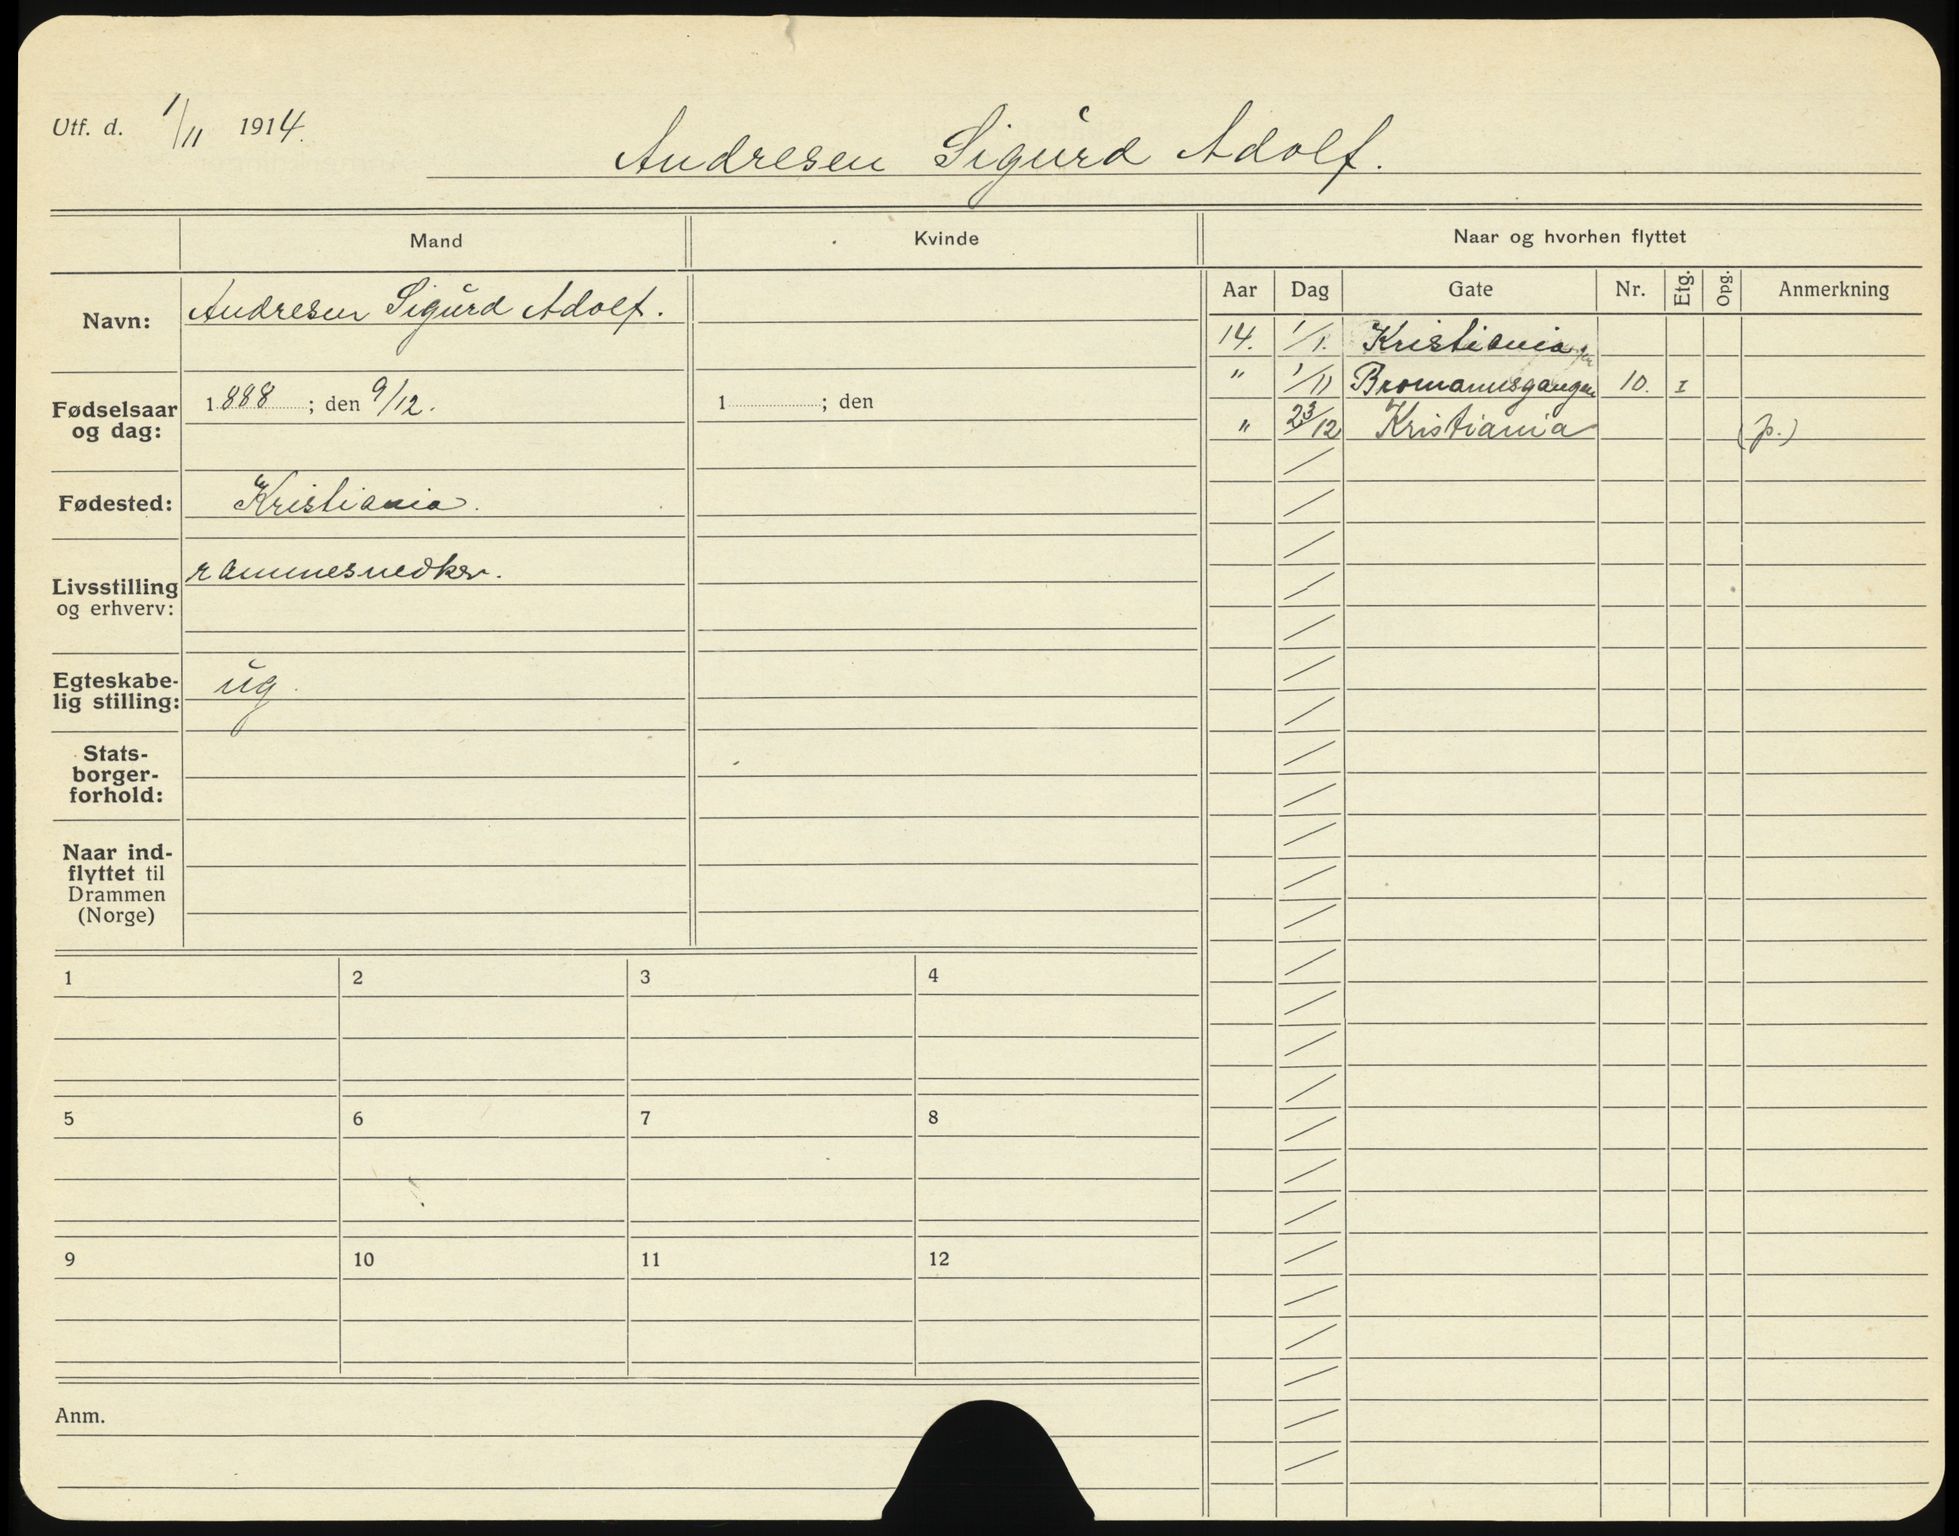 Utf. d. 1/11 1914.
Andresen Sigurd Adolf.
Mand Kvinde Naar og hvorhen flyttet
Aar Dag Gate Nr. Etg. Opg. Anmerkning
Navn: Andresen Sigurd Adolf.
14. 1/1. Kristiania
" 1/11 Bromannsgangen 10. I
" 23/12 Kristiania (p.)
Fødselsaar
og dag:
1888; den 9/12. 1 ; den
Fødested: Kristiania.
Livsstilling
og erhverv:
rammesnedker.
Egteskabe-
lig stilling:
ug.
Stats-
borger-
forhold:
Naar ind-
flyttet til
Drammen
(Norge)
1 2 3 4
5 6 7 8
9 10 11 12
Anm.